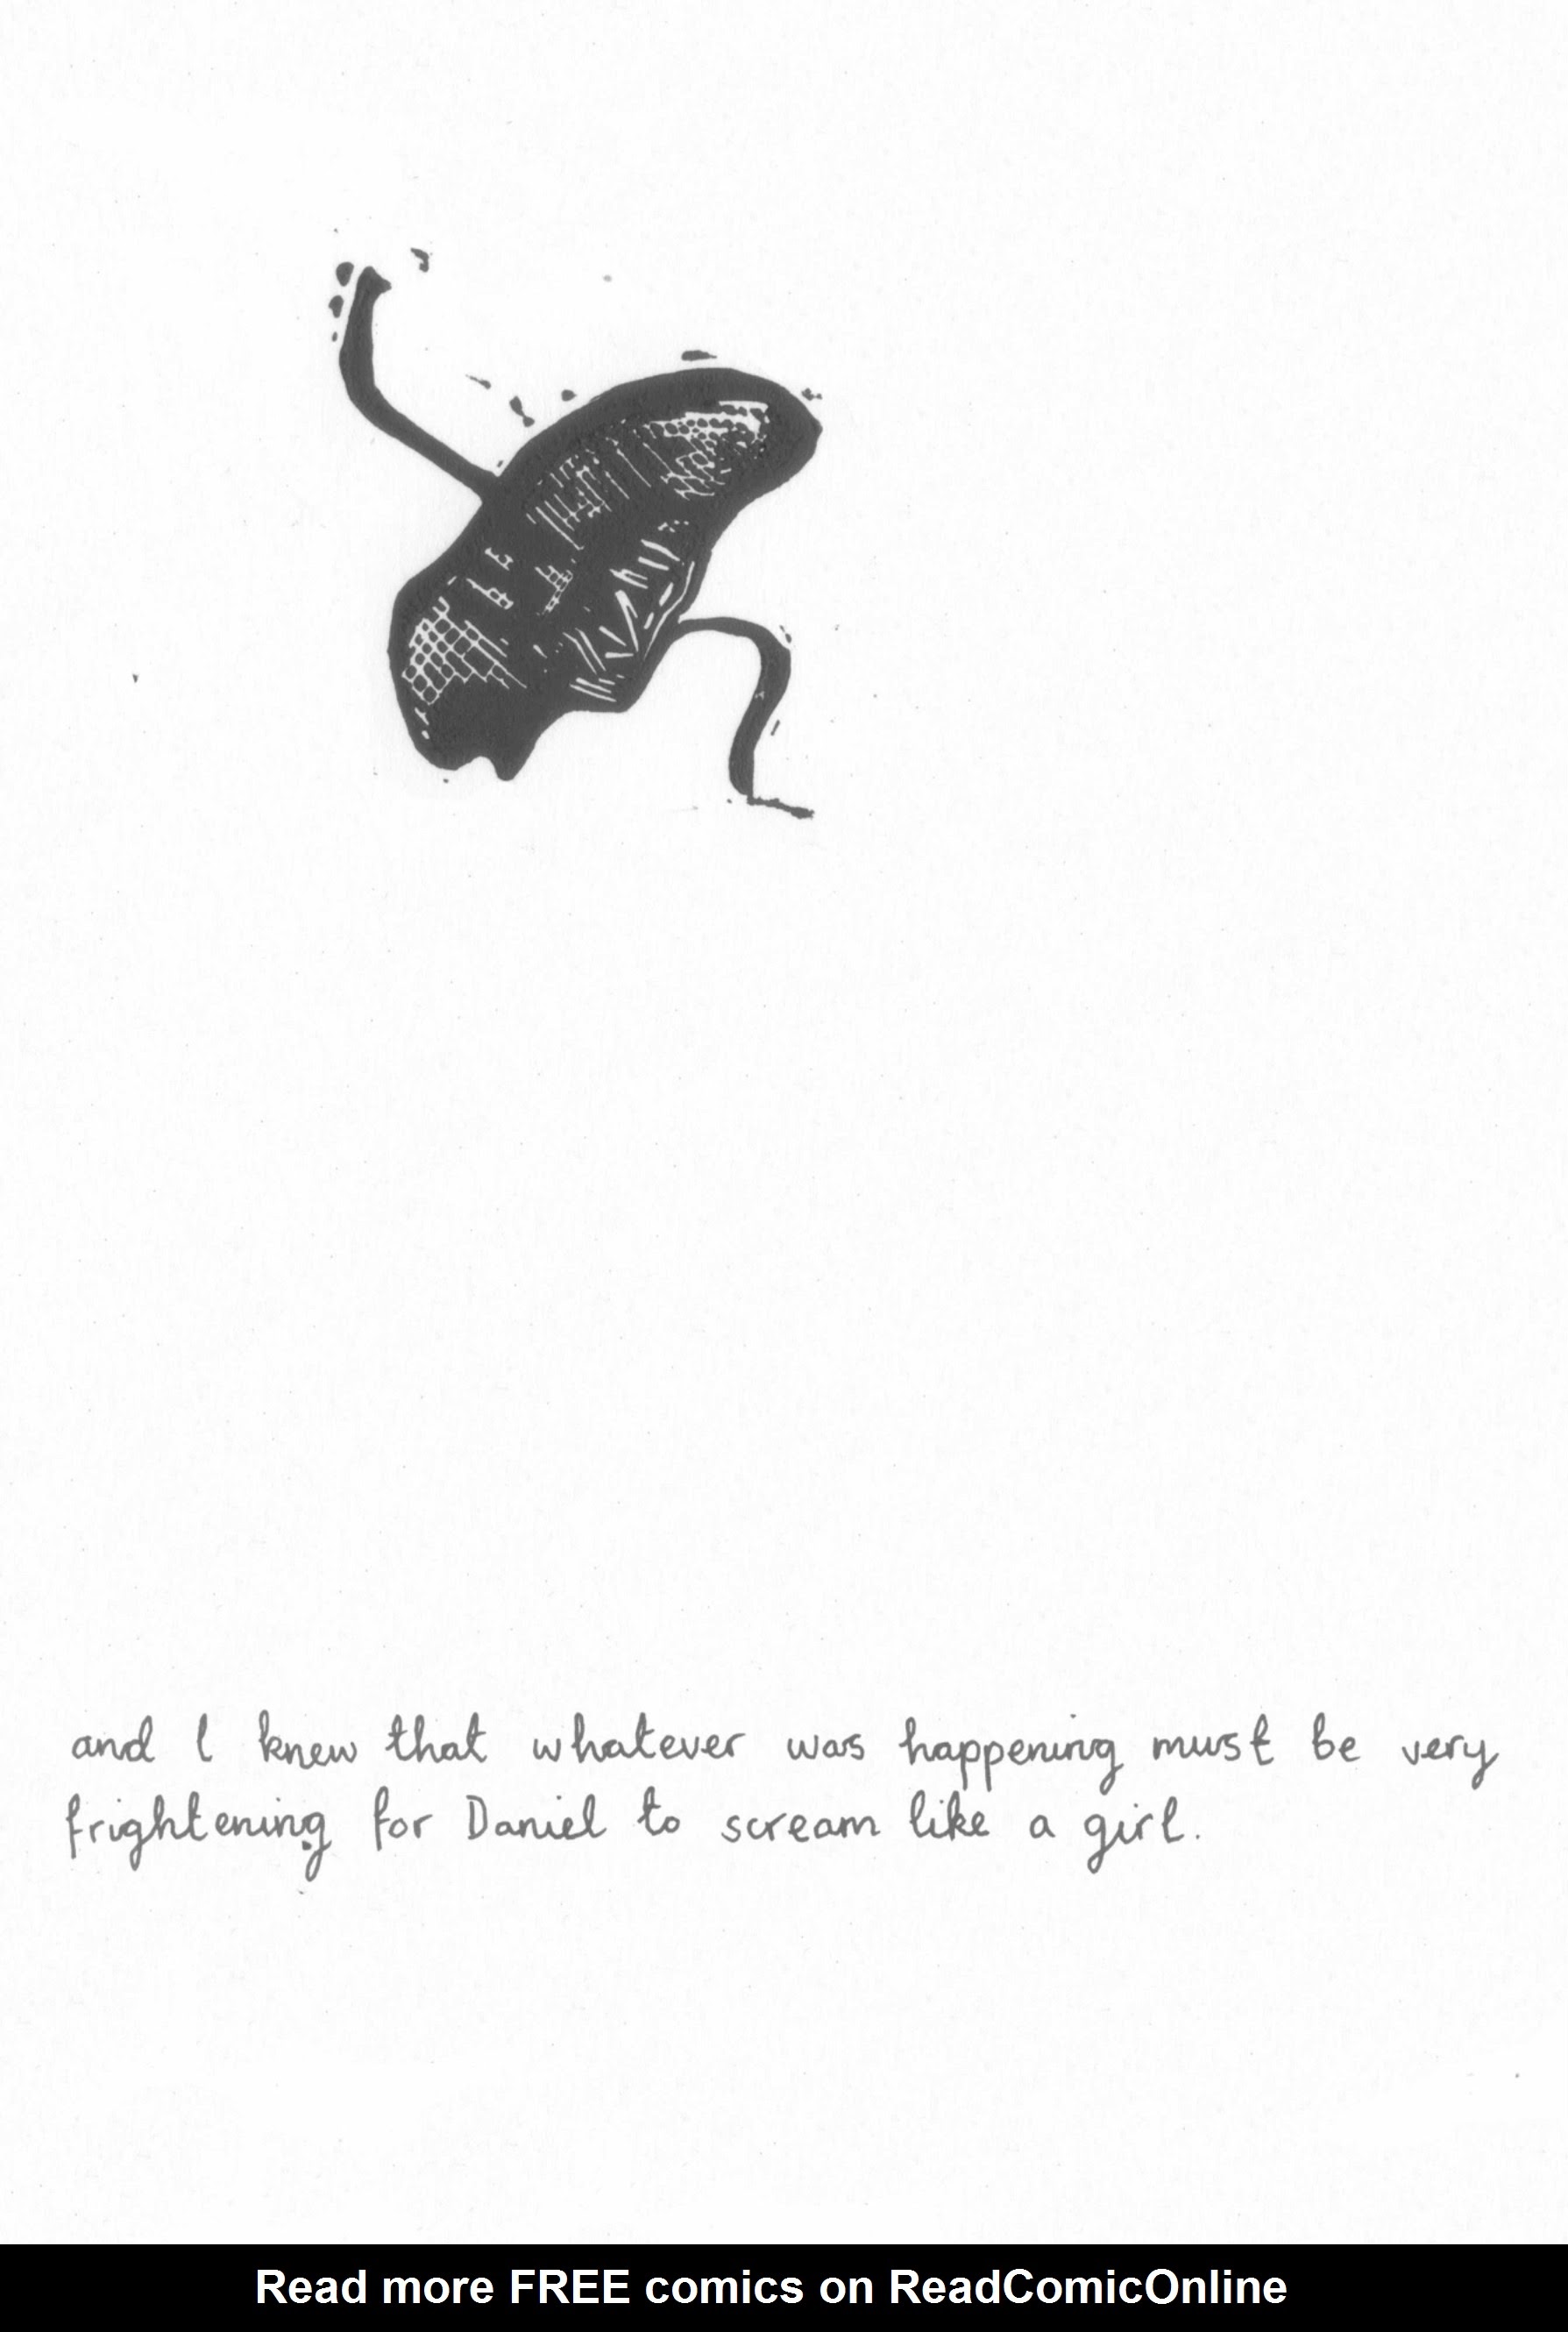 and I knew that whatever was happening must be very
frightening for Daniel to scream like a girl.
Read more FREE comics on ReadComicOnline